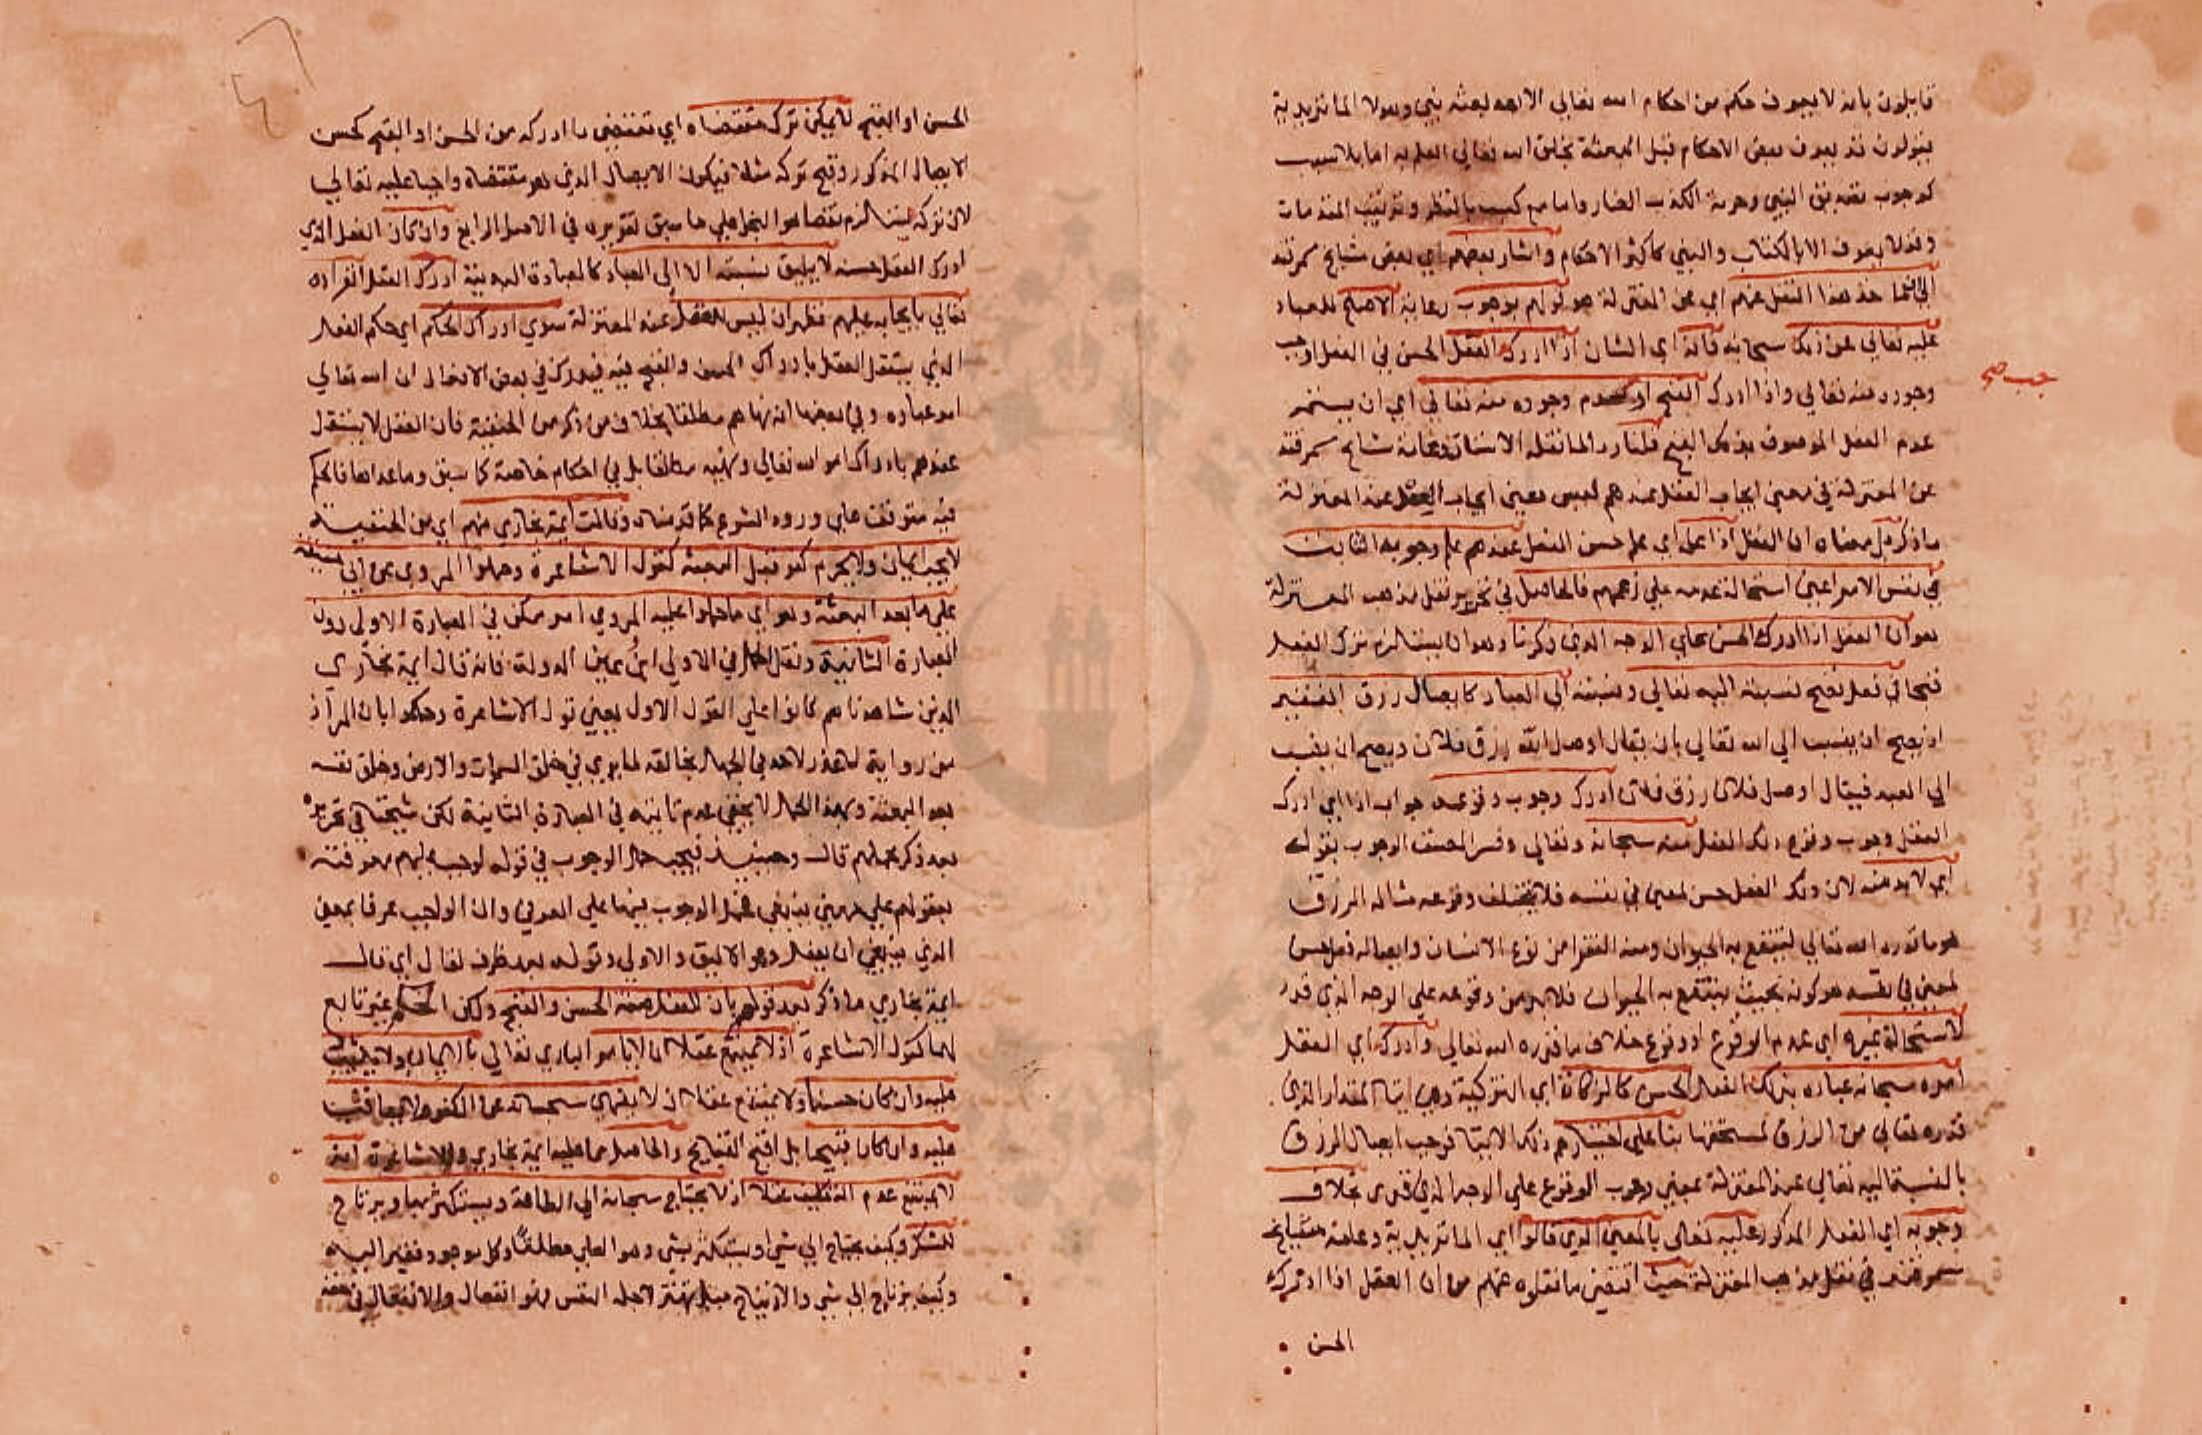 قايلون بانه لا يعرف حكم من احكام الله تعالى الا بعد بعثة نبي وهولا الماتريدية
يقولون قد يعرف بعض الاحكام قبل البعثة بخلق الله تعالى العلم به اما بلا سبب
كوجوب تصديق النبي وحرمة الكذب الضار واما مع كسب بالنظر وترتيب المقدمات
وقد لا يعرف الا بالكتاب والنبي كاكثر الاحكام واشار بعضهم اي بعض مشايخ سمرقند
هذا النقل عنهم اي عن المعتزلة هو قولهم بوجوب رعاية الاصلح للعباد
عليه تعالى عن ذلك سبحانه فانه اي الشان اذا ادرك العقل الحسن في الفعل اوجب
وجوده منه تعالى واذا ادرك القبح اوجب عدم وجوده منه تعالى اي ان يستمر
عدم الفعل الموصوف بذلك القبح قلنا رد لما نقله الاستاذ وعامة مشايخ سمرقند
عن المعتزلة في معنى ايجاب العقل عندهم ليس معنى ايجاب العقل عند المعتزلة
ما ذكر بل معناه ان العقل اذا علم اي علم حسن الفعل عندهم علم وجوبه الثابت
في نفس الامر اعني استحالة عدمه على زعمهم فالحاصل في تحرير نقل مذهب المعتزلة
هو ان العقل اذا ادرك الحسن على الوجه الذي ذكرنا وهو ان يستلزم ترك الفعل
قبحا في فعل تصح نسبته اليه تعالى ونسبته الى العباد كايصال رزق الفقير
اذ يصح ان ينسب الى الله تعالى بان يقال اوصل الله رزق فلان ويصح ان ينسب
الى العبد فيقال اوصل فلان رزق فلان ادرك وجوب وقوعه جواب اذا اي ادرك
العقل وجوب وقوع ذلك الفعل منه سبحانه وتعالى وفسر المصنف الوجوب بقوله
اي لا بد منه لان ذلك الفعل حسن لمعنى في نفسه فلا يتخلف وقوعه مثاله الرزق
هو ما قدره الله تعالى لينتفع به الحيوان ومنه الفقرا من نوع الانسان وايصاله فعل حسن
لمعنى في نفسه هو كونه بحيث ينتفع به الحيوان فلا بد من وقوعه على الوجه الذي قدر
لاستحالة غيره اي عدم الوقوع او وقوع خلاف ما قدره الله تعالى وادرك اي العقل
امره سبحانه عباده بذلك الفعل الحسن كالزكاة اي التزكية وهي ايتا المقدار الذي
قدره تعالى من الرزق لمستحقها بنا على اختيارهم ذلك الايتا فوجب ايصال الرزق
بالنسبة اليه تعالى عند المعتزلة بمعنى وجوب الوقوع على الوجه الذي قدر بخلاف
وجوبه اي الفعل المذكور عليه تعالى بالمعنى الذي قالوا اي الماتريدية وعامة مشايخ
سمرقند في نقل مذهب المعتزلة حيث اقتضى ما نقلوه عنهم من ان العقل اذا ادرك
الحسن
جب صح
الحسن او القبح لا يمكن ترك مقتضاه اي تقتضي ما ادركه من الحسن او القبح كحسن
الايصال المذكور وقبح تركه مثلا فيكون الايصال الذي هو مقتضاه واجبا عليه تعالى
لان تركه يستلزم نقصا هو البخل على ما سبق تقريره في الاصل الرابع وان كان الفعل الذي
ادرك العقل حسنه لا يليق نسبته الا الى العباد كالعبادة البدنية ادرك العقل انفراده
تعالى بايجابه عليهم فظهر ان ليس للعقل عند المعتزلة سوى ادراك الحكم اي حكم الفعل
الذي يستقل العقل بادراك الحسن والقبح فيه فيدرك في بعض الافعال ان الله تعالى
امر عباده وفي بعضها انه نهاهم مطلقا بخلاف من ذكر من الحنفية فان العقل لا يستقل
عندهم بادراك امر الله تعالى ونهيه مطلقا بل في احكام خاصة كما سبق وما عداها فالحكم
فيه متوقف على ورود الشرع كما قدمناه وقالت ايمة بخارى منهم اي من الحنفية
لا يجب ايمان ولا يحرم كفر قبل البعثة كقول الاشاعرة وحملوا المروي عن ابي حنيفة
على ما بعد البعثة وهو اي ما حملوا عليه المروي امر ممكن في العبارة الاولى دون
العبارة الثانية ونقل الحمل في الاولى ابن عين الدولة فانه قال ايمة بخارى
الذين شاهدناهم كانوا على القول الاول يعني قول الاشاعرة وحكموا بان المراد
من رواية لا عذر لاحد في الجهل بخالقه لما يرى في خلق السموات والارض وخلق نفسه
بعد البعثة وبهذا الحمل لا يخفى عدم تاتيه في العبارة الثانية لكن شيخنا في تحريره
بعد ذكر حملهم قال وحينيذ فيجب حمل الوجوب في قوله لوجب عليهم معرفته
بعقولهم على معنى ينبغي فحمل الوجوب فيها على العرفي وان الواجب عرفا بمعنى
الذي ينبغي ان يفعل وهو الاليق والاولى وقوله بعد ظرف لقال اي قال
ايمة بخارى ما ذكر بعد قولهم بان للفعل صفة الحسن والقبح ولكن الحكم غير تابع
لهما كقول الاشاعرة اذ لا يمتنع عقلا ان لا يامر الباري تعالى بالايمان ولا يثيب
عليه وان كان حسنا ولا يمتنع عقلا ان لا ينهى سبحانه عن الكفر ولا يعاقب
عليه وان كان قبيحا بل اقبح القبايح والحاصل مما عليه ايمة بخارى والاشاعرة انه
لا يمتنع عدم التكليف عقلا اذ لا يحتاج سبحانه الى الطاعة ويستكثر بها ويرتاح
للشكر وكيف يحتاج الى شي او يستكثر بشي وهو الغني مطلقا وكل موجود فقير اليه
وكيف يرتاح الى شي والارتياح ميل تهتز لاجله النفس فهو انفعال والانفعال في حقه